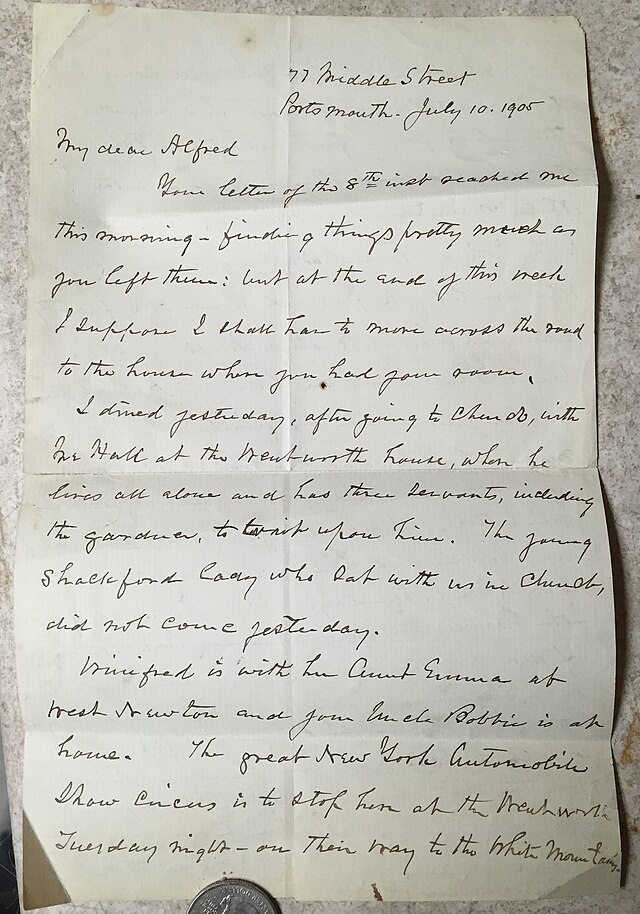 77 Middle Street
Portsmouth. July 10. 1905
My dear Alfred
Your letter of the 8th inst reached me
this morning - finding things pretty much as
you left them: but at the end of this week
I suppose I shall have to move across the road
to the house where you had your room.
I dined yesterday, after going to Church, with
Mr Hall at the Wentworth house, where he
lives all alone and has three servants, including
the gardner, to wait upon him. The young
Shackford lady who sat with us in Church,
did not come yesterday.
Winifred is with her Aunt Emma at
West Newton and your Uncle Bobbie is at
home. The great New York Automobile
Show circus is to stop here at the Wentworth
Tuesday night - on their way to the White Mountains